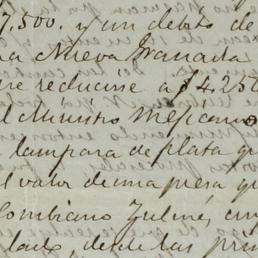 7,500. y un debito de
a Nueva Granada
re reducirse a $4.250
l Ministro Mejicano
lampara de plata q
l valor de una presa qu
lombiano Zulmé, cuy
lado desde las prim